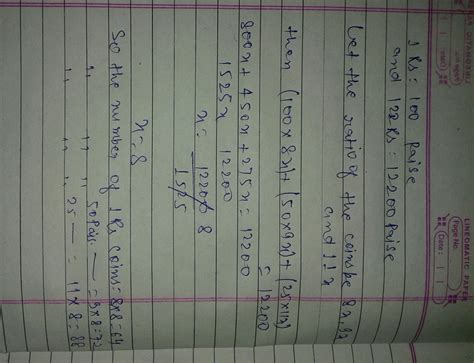 LINEOMATIC PAPER
Page No.
Date:
1 Rs = 100 Paise
and 122 Rs = 12200 Paise
Let the ratio of the coins be 8x, 9x
and 11x
then (100×8x)+(50×9x)+(25×11x)
= 12200
800x + 450x + 275x = 12200
1525x 12200
x = 12200 8
1525
x = 8
So the number of 1 Rs coins = 8×8=64
,, ,, ,, 50 Pais. — = 9×8=72
,, ,, ,, 25 — = 11×8=88